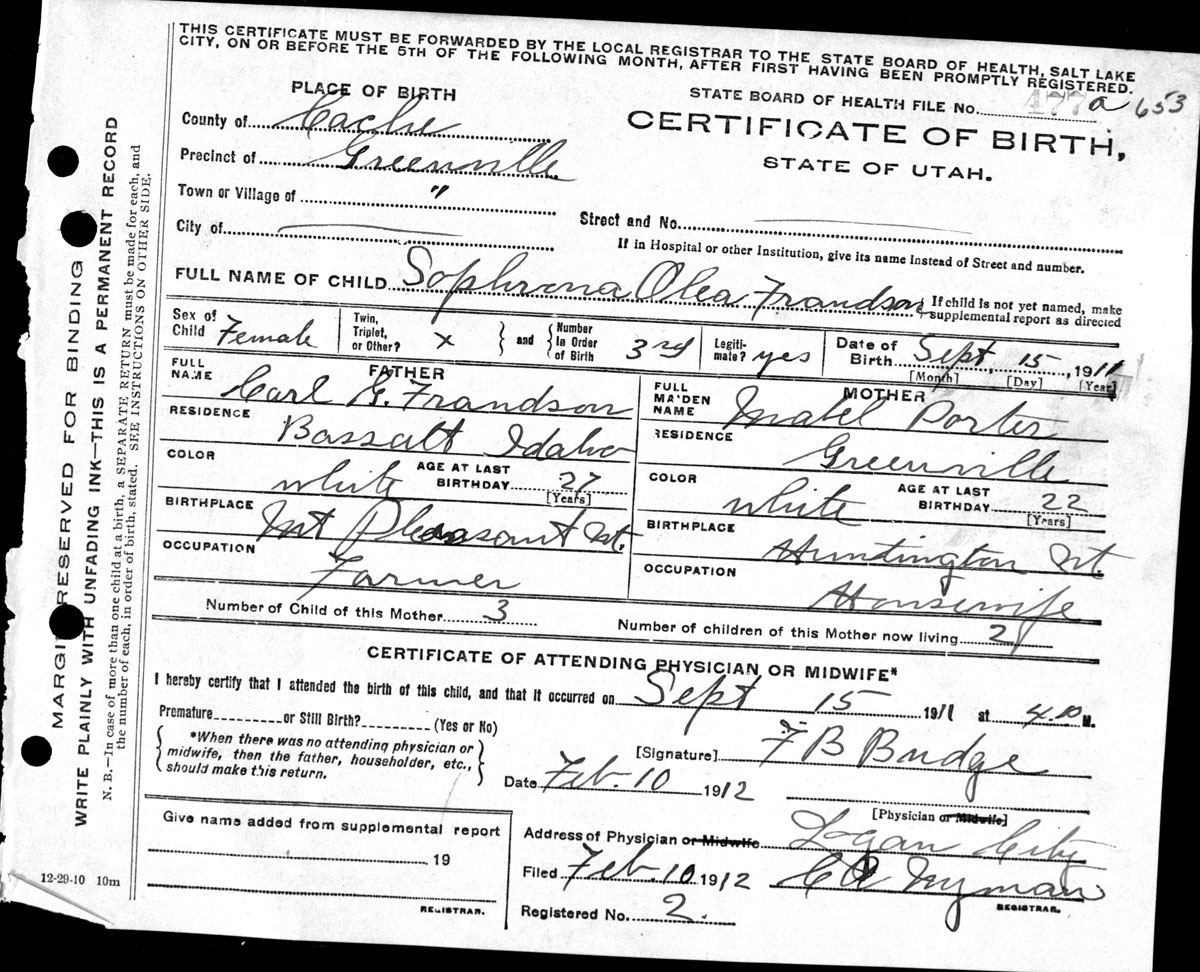 THIS CERTIFICATE MUST BE FORWARDED BY THE LOCAL REGISTRAR TO THE STATE BOARD OF HEALTH, SALT LAKE
CITY, ON OR BEFORE THE 5TH OF THE FOLLOWING MONTH, AFTER FIRST HAVING BEEN PROMPTLY REGISTERED.
PLACE OF BIRTH
STATE BOARD OF HEALTH FILE No. 177 a 653
County of Cache
CERTIFICATE OF BIRTH,
Precinct of Greenville
STATE OF UTAH.
Town or Village of "
Street and No.
City of
If in Hospital or other Institution, give its name instead of Street and number.
FULL NAME OF CHILD Sophrona Olea Frandson { If child is not yet named, make supplemental report as directed
Sex of Child Female Twin, Triplet, or Other? x } and { Number in Order of Birth 3rd Legitimate? yes Date of Birth Sept 15, 1911
[Month] [Day] [Year]
FATHER
FULL NAME Carl G. Frandson
RESIDENCE
Bassalt Idaho
COLOR white AGE AT LAST BIRTHDAY 27
[Years]
BIRTHPLACE
Mt Pleasant Ut.
OCCUPATION
Farmer
MOTHER
FULL MAIDEN NAME Mabel Porter
RESIDENCE
Greenville
COLOR white AGE AT LAST BIRTHDAY 22
[Years]
BIRTHPLACE
Huntington Ut
OCCUPATION
Housewife
Number of Child of this Mother 3
Number of children of this Mother now living 2
CERTIFICATE OF ATTENDING PHYSICIAN OR MIDWIFE*
I hereby certify that I attended the birth of this child, and that it occurred on Sept 15 1911 at 4.10 M.
Premature or Still Birth? (Yes or No)
*When there was no attending physician or
midwife, then the father, householder, etc.,
should make this return.
[Signature] F B Budge
Date Feb. 10 1912
[Physician or Midwife]
Give name added from supplemental report
19
REGISTRAR.
Address of Physician or Midwife Logan City
Filed Feb. 10 1912 Nyman
REGISTRAR.
Registered No. 2.
12-29-10 10m
MARGIN RESERVED FOR BINDING
WRITE PLAINLY WITH UNFADING INK—THIS IS A PERMANENT RECORD
N. B.—In case of more than one child at a birth, a SEPARATE RETURN must be made for each, and
the number of each, in order of birth, stated. SEE INSTRUCTIONS ON OTHER SIDE.